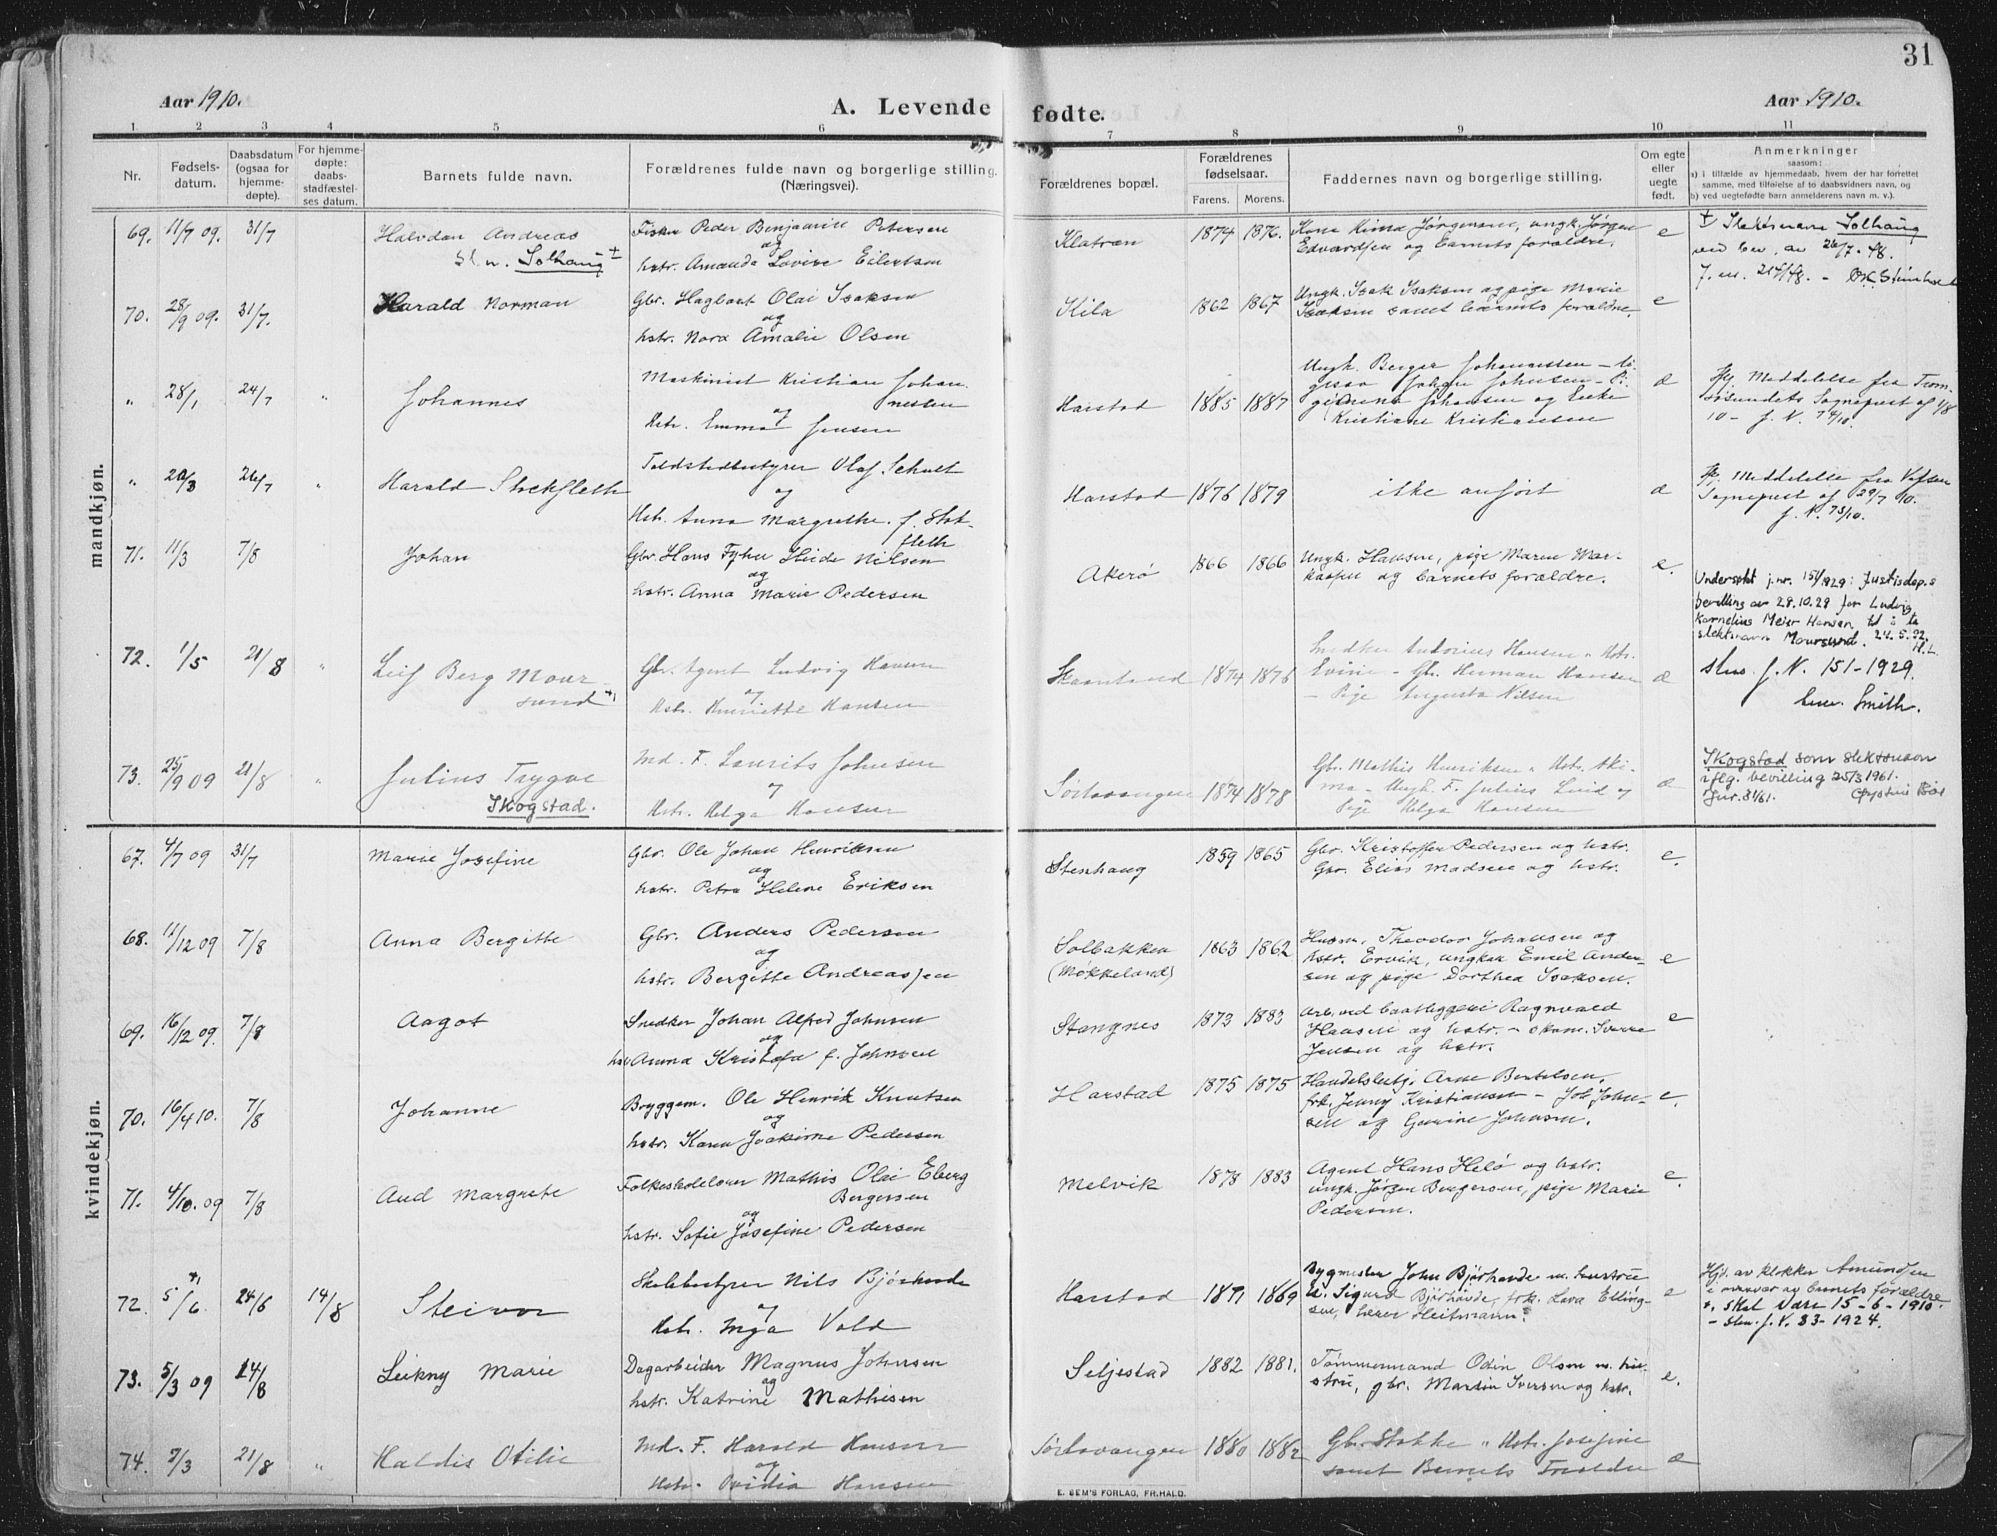 31
Aar 1910.
A. Levende fødte.
Aar 1910.
1 2 3 4 5 6 7 8 9 10 11
Nr.
Fødsels-
datum.
Daabsdatum
(ogsaa for
hjemme-
døpte).
For hjemme-
døpte:
daabs-
stadfæstel-
ses datum.
Barnets fulde navn.
Forældrenes fulde navn og borgerlige stilling.
(Næringsvei).
Forældrenes bopæl.
Forældrenes
fødselsaar.
Farens. Morens.
Faddernes navn og borgerlige stilling.
Om egte
eller
uegte
født.
Anmerkninger
saasom:
a) i tilfælde av hjemmedaab, hvem der har forrettet
samme, med tilføielse af to daabsvidners navn, og
b) ved uegtefødte barn anmelderens navn m. v.).
mandkjøn.
69. 11/7 09. 31/7
Halvdan Andreas
sl.n. Solhaug ±
Fisker Peder Benjamin Petersen
og
hstr. Amanda Lovise Eilertsen
Klatran 1874 1876.
Jørgensen, ungk. Jørgen
Edvardsen og barnets forældre. e
± Slektsnavn Solhaug
ved bev. av 26/7-48.
70. 28/9 09. 31/7.
Harald Norman
Gbr. Hagbart Olai Isaksen
og
hstr. Nora Amalie Olsen
Kila 1862 1867
Ungk. Isak Isaksen og pige Marie
Isaksen samt barnets forældre. e
" 28/1 24/7 "
Johannes
Maskinist Kristian Johan-
nessen
og
Hstr. Emma Jensen
Harstad 1885 1887
Ungk. Berger Johannessen –
Johan Johnsen –
Johansen og Enke
Kristiane Kristiansen
Iflg. Meddelelse fra Trom-
søsundets Sogneprest af 1/8
10 – J. N. 74/10.
" 20/3 24/7 "
Harald Stockfleth
Toldstedbestyrer Olaf Schult
og
Hstr. Anna Margrethe f. Stok-
fleth
Harstad 1876 1879
ikke anført
Iflg. Meddelelse fra Vefsen
Sogneprest af 29/7 10.
J. N. 73/10.
71. 11/3 7/8
Johan
Gbr. Hans Fyhn Heide Nilsen
og
hstr. Anna Marie Pedersen
Akerø 1866 1866
Ungk. Hansen, pige Maren Mar-
og barnets forældre. e.
72. 1/5 21/8 "
Leif Berg Mour-
sund +)
Gbr. Agent Ludvig Hansen
og
Hstr. Henriette Hansen
Skaanland 1874 1876
Snedker Antonius Hansen " Hstr.
Evine – Gbr. Herman Hansen
– Pige Augusta Nilsen
Undersøkt j.nr. 151/1929: Justisdep.s
bevilling av 28.10.29 for Ludvig
Kornelius Meier Hansen til å ta
slektsnavn Moursund. 24.5.32.
H.L.
skr. J. N. 151-1929.
Smith.
73. 25/9 09 21/8 "
Julius Trygve
Skogstad.
Md. F. Laurits Johnsen
og
Hstr. Helga Hansen
Sørlavangen 1874 1878
Gbr. Mathis Henriksen " Hstr.
– Ungk. F. Julius Lind og
Pige Helga Hansen
Skogstad som slektsnavn
iflg. bevilling 25/3 1961.
Jnr. 81/61. Øystein
kvindekjøn.
67. 4/7 09 31/7
Marie Josefine
Gbr. Ole Johan Henriksen
og
hstr. Petra Helene Eriksen
Stenhaug 1859 1865
Gbr. Kristoffer Pedersen og hstr.
Gbr. Elias Madsen og hstr. e.
68. 11/12 09 7/8
Anna Bergitte
Gbr. Anders Pedersen
og
hstr. Bergitte Andreassen
Solbakken
(Møkkeland)
1863 1862
Husm. Theodor Johansen og
hstr. Ervik, ungkar Emil Ander-
sen og pige Dorthea Isaksen. e
69. 16/12 09. 7/8
Aagot
Snedker Johan Alfred Johnsen
og
Anna Kristofa f. Johnsen
Stangnes 1873 1883
Arb. ved baatbyggeri Ragnvald
Hansen og hstr. – skom. Sverre
Jensen og hstr. e
70. 16/4 10. 7/8
Johanne
Bryggem. Ole Henrik Knutsen
og
hstr. Karen Joakime Pedersen
Harstad 1875 1875
Handelsbetj. Arne Bertelsen,
frk. Jenny Kristiansen – Joh. John-
sen og Gurine Johnsen. e.
71. 4/10. 09 7/8
Aud Margrete
Folkeskolelærer Mathis Olai Eberg
Bergersen
og
hstr. Sofie Josefine Pedersen
Melvik 1878 1883
Agent Hans Helø og hstr.
ungk. Jørgen Bergersen, pige Marie
Pedersen. e.
72. 5/6 +) 24/6 14/8
Steivor
Skolebestyrer Nils Bjørhovde
og
Hstr. Inga Vold
Harstad 1871 1869
Bygmester John Bjørhovde m. hustru
Sigurd Bjørhovde, frk. Lava Elling-
sen, lærer Heitmann. e
Hjd. av klokker Amundsen
i nærvær og barnets forældre.
+, skal være 15-6-1910.
– skr. J. N. 33-1924.
73. 5/3 09 14/8
Leikny Marie
Dagarbeider Magnus Johnsen
og
hstr. Katrine Mathisen
Seljestad 1882 1881.
Tømmermand Odin Olsen m. hu-
stru, gbr. Martin Iversen og hstr. e.
74. 7/3 21/8 "
Haldis Otilie
Md. F. Harald Hansen
og
Hstr. Ovidia Hansen
Sørlavangen 1880 1882
Gbr. Stokke " Hstr. Josefine
samt Barnets Forældre
E. SEM'S FORLAG, FR.HALD.